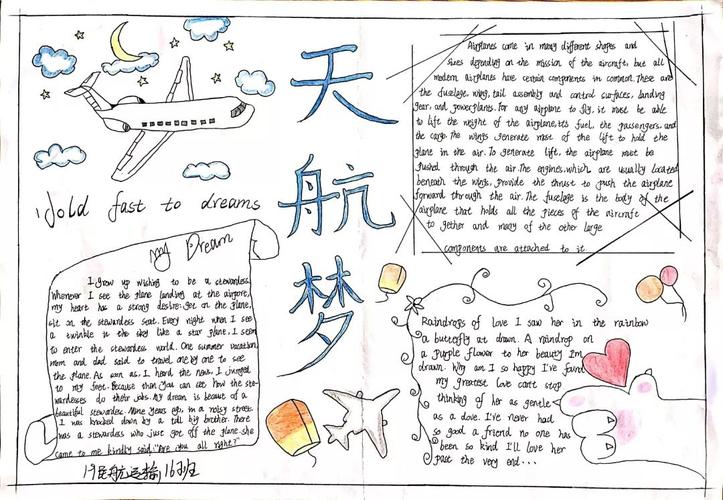 天
航
梦
Hold fast to dreams
My Dream
I grow up wishing to be a stewardess.
Whenever I see the plane landing at the airpore,
my heart has a strong desire: get on the plane,
sit on the stewardess seat. Every night when I see
a twinkle in the sky like a star plane, I seem
to enter the stewardess world. One summer vacation,
mom and dad said to travel, one by one to see
the plane. As soon as I heard the news, I jumped
to my feet. Because then you can see how the ste-
wardesses do their jobs. My dream is becaue of a
beautiful stewardes. Nine years ago, in a noisy street,
I was knocked down by a tall big brother. There
was a stewardess who just got off the plane. She
came to me kindly said: "Are you all right?"
19民航运输16班
Airplanes come in many different shapes and
sizes depending on the mission of the aircraft, but all
modern airplanes have certain components in common. These are
the fuselage, wing, tail assembly and control surfaces, landing
gear, and powerplanes. For any airplane to fly, it must be able
to lift the weight of the airplane, its fuel, the passengers, and
the cargo. The wings generate most of the lift to hold the
plane in the air. To generate lift, the airplane must be
pushed through the air. The engines, which are usually located
beneath the wings, provide the thrust to push the airplane
forward through the air. The fuselage is the body of the
airplane that holds all the pieces of the aircraft
to gether and many of the other large
components are attached to it
Raindrops of love I saw her in the rainbow
a butterfly at dawn. A raindrop on
a purple flower to her beauty I'm
drawn. Why am I so happy I've found
my greatest love can't stop
thinking of her as gentle
as a dove. I've never had
so good a friend no one has
been so kind I'll love her
past the very end...